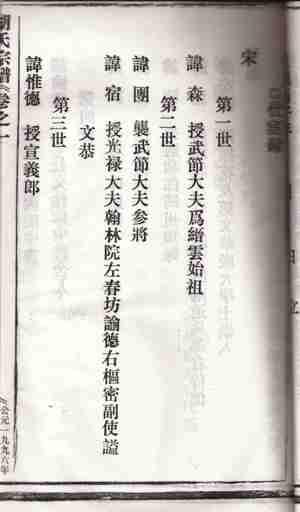 宋
第一世
諱森 授武節大夫爲縉雲始祖
第二世
諱團 襲武節大夫參將
諱宿 授光禄大夫翰林院左春坊諭德右樞密副使謚
文恭
第三世
諱惟德 授宣義郎
胡氏宗譜《卷之一
公元一九九六年